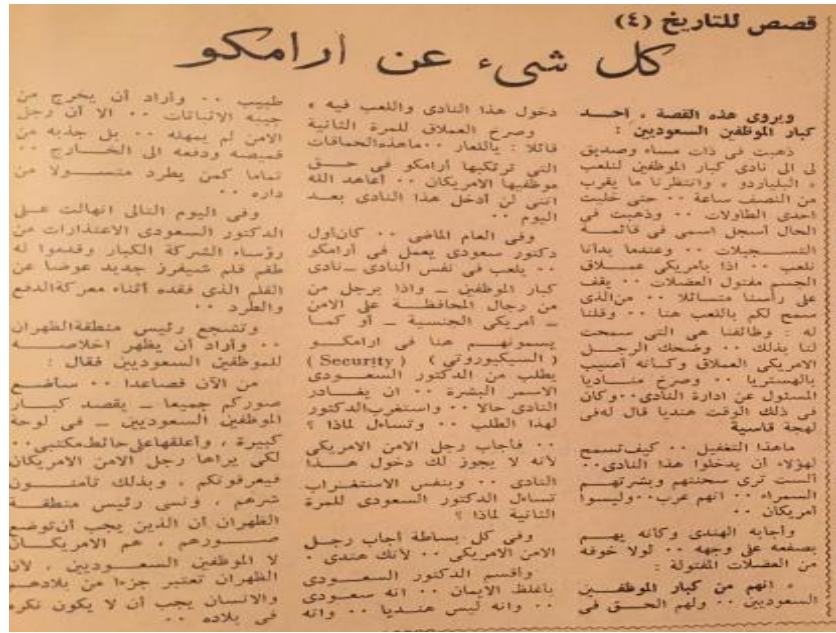 قصص للتاريخ (٤)
كل شيء عن أرامكو
ويروى هذه القصة ، أحد
كبار الموظفين السعوديين :
ذهبت فى ذات مساء وصديق
لى الى نادى كبار الموظفين لنلعب
« البلياردو » وانتظرنا ما يقرب
من النصف ساعة ٠٠ حتى خليت
احدى الطاولات ٠٠ وذهبت فى
الحال أسجل اسمى فى قائمة
التسجيلات ٠٠ وعندما بدأنا
نلعب ٠٠ اذا بأمريكى عملاق
الجسم مفتول العضلات ٠٠ يقف
على رأسنا متسائلا ٠٠ من الذى
سمح لكم باللعب هنا ٠٠ وقلنا
له : وظائفنا هى التى سمحت
لنا بذلك ٠٠ وضحك الرجل
الامريكى العملاق وكأنه أصيب
بالهستريا ٠٠ وصرخ مناديا
المسئول عن ادارة النادى ٠٠ وكان
فى ذلك الوقت هنديا قال له فى
لهجة قاسية
ماهذا التغفيل ٠٠ كيف تسمح
لهؤلاء أن يدخلوا هذا النادى ٠٠
ألست ترى سحنتهم وبشرتهم
السمراء ٠٠ انهم عرب ٠٠ وليسوا
أمريكان ٠٠
وأجابه الهندى وكأنه يهم
بصفعه على وجهه ٠٠ لولا خوفه
من العضلات المفتولة :
« انهم من كبار الموظفين
السعوديين ٠٠ ولهم الحق فى
دخول هذا النادى واللعب فيه »
وصرخ العملاق للمرة الثانية
قائلا : ياللعار ٠٠ ماهذه الحماقات
التى ترتكبها أرامكو فى حق
موظفيها الامريكان ٠٠ أعاهد الله
اننى لن أدخل هذا النادى بعد
اليوم ٠٠
وفى العام الماضى ٠٠ كان أول
دكتور سعودى يعمل فى أرامكو
٠٠ يلعب فى نفس النادى ــ نادى
كبار الموظفين ــ واذا برجل من
من رجال المحافظة على الامن
ــ أمريكى الجنسية ــ أو كما
يسمونهم هنا فى ارامكو
( السيكيوروتي ) ( Security )
يطلب من الدكتور السعودى
الاسمر البشرة ٠٠ ان يغادر
النادى حالا ٠٠ واستغرب الدكتور
لهذا الطلب ٠٠ وتساءل لماذا ؟
٠٠ فأجاب رجل الامن الامريكى
لأنه لا يجوز لك دخول هذا
النادى ٠٠ وبنفس الاستغراب
تساءل الدكتور السعودى للمرة
الثانية لماذا ؟
وفى كل بساطة أجاب رجل
الامن الامريكى ٠٠ لأنك هندى ٠
وأقسم الدكتور السعودى
بأغلظ الايمان ٠٠ انه سعودى
٠٠ وانه ليس هنديا ٠٠ وانه
طبيب ٠٠ وأراد أن يخرج من
جيبه الاثباتات ٠٠ الا أن رجل
الامن لم يمهله ٠٠ بل جذبه من
قميصه ودفعه الى الخارج ٠٠
تماما كمن يطرد متسولا من
داره ٠٠
وفى اليوم التالى انهالت على
الدكتور السعودى الاعتذارات من
رؤساء الشركة الكبار وقدموا له
طقم قلم شيفرز جديد عوضا عن
القلم الذى فقده أثناء معركة الدفع
والطرد ٠٠
وتشجع رئيس منطقة الظهران
٠٠ وأراد أن يظهر اخلاصه
للموظفين السعوديين فقال :
من الآن فصاعدا ٠٠ سأضع
صوركم جميعا ــ يقصد كبار
الموظفين السعوديين ــ فى لوحة
كبيرة ، وأعلقها على حائط مكتبى ٠٠
لكى يراها رجل الامن الامريكان
فيعرفونكم ، وبذلك تأمنون
شرهم ، ونسى رئيس منطقة
الظهران أن الذين يجب أن توضع
صورهم ، هم الامريكان
لا الموظفين السعوديين ، لأن
الظهران تعتبر جزءا من بلادهم
والانسان يجب أن لا يكون نكرة
فى بلاده ٠٠